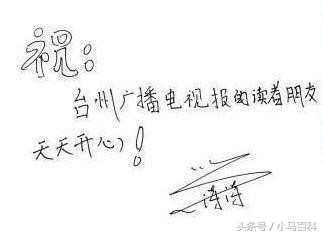 祝:
台州广播电视报的读者朋友
天天开心!
诗诗
头条号 / 小马百科